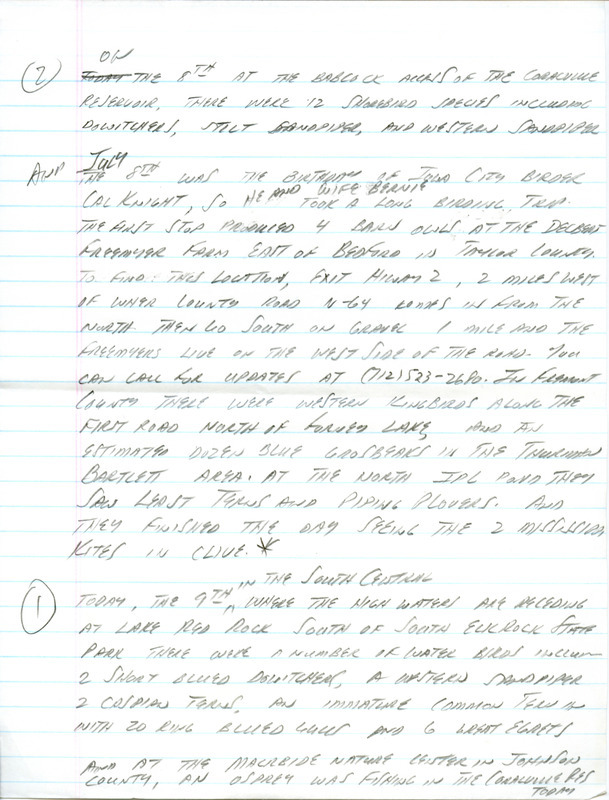 ON
(2) TODAY THE 8TH AT THE BABCOCK ACCESS OF THE CORALVILLE
RESERVOIR, THERE WERE 12 SHOREBIRD SPECIES INCLUDING
DOWITCHERS, STILT SANDPIPER, AND WESTERN SANDPIPER
AND July
THE 8TH WAS THE BIRTHDAY OF IOWA CITY BIRDER
CAL KNIGHT, SO HE AND WIFE BERNIE TOOK A LONG BIRDING TRIP.
THE FIRST STOP PRODUCED 4 BARN OWLS AT THE DELBERT
FREEMYER FARM EAST OF BEDFORD IN TAYLOR COUNTY.
TO FIND THIS LOCATION, EXIT HIWAY 2, 2 MILES WEST
OF WHERE COUNTY ROAD N-64 COMES IN FROM THE
NORTH. THEN GO SOUTH ON GRAVEL 1 MILE AND THE
FREEMYERS LIVE ON THE WEST SIDE OF THE ROAD. YOU
CAN CALL FOR UPDATES AT (712) 523-2680. IN FREMONT
COUNTY THERE WERE WESTERN KINGBIRDS ALONG THE
FIRST ROAD NORTH OF FORNEY LAKE, AND AN
ESTIMATED DOZEN BLUE GROSBEAKS IN THE THURMAN
BARTLETT AREA. AT THE NORTH IPL POND THEY
SAW LEAST TERNS AND PIPING PLOVERS. AND
THEY FINISHED THE DAY SEEING THE 2 MISSISSIPPI
KITES IN CLIVE. *
IN THE SOUTH CENTRAL
(1) TODAY, THE 9TH, WHERE THE HIGH WATERS ARE RECEDING
AT LAKE RED ROCK SOUTH OF SOUTH ELK ROCK STATE
PARK THERE WERE A NUMBER OF WATER BIRDS INCLUDIN
2 SHORT BILLED DOWITCHERS, A WESTERN SANDPIPER
2 CASPIAN TERNS, AN IMMATURE COMMON TERN IN
WITH 20 RING BILLED GULLS AND 6 GREAT EGRETS
AND AT THE MACBRIDE NATURE CENTER IN JOHNSON
COUNTY, AN OSPREY WAS FISHING IN THE CORALVILLE RES
TODAY